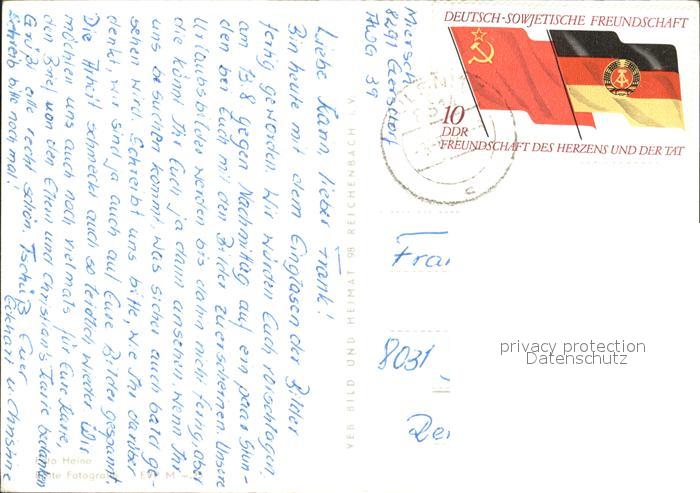 Liebe Karin, lieber Frank!
Bin heute mit dem Einglasen der Bilder
fertig geworden. Wir würden Euch vorschlagen,
am 13.8 gegen Nachmittag auf ein paar Stun-
den bei Euch mit den Bilder zu erscheinen. Unsere
Urlaubsbilder werden bis dahin nicht fertig, aber
die könnt Ihr Euch ja dann ansehen, wenn Ihr
uns besuchen kommt, was sicher auch bald ge-
sehen wird. Schreibt uns bitte, wie Ihr darüber
denkt, wir sind ja auch auf Eure Bilder gespannt.
Die Arbeit schmeckt auch so leidlich wieder. Wir
möchten uns auch noch vielmals für Eure Karte,
den Brief von den Eltern und Christian's Karte bedanken
Grüß alle recht schön. Tschüß Euer
schreib bitte noch mal! Eckhart u. Christine
Heine
Fotogra
VEB BILD UND HEIMAT 98 REICHENBACH
Miersch
8291 Gersdorf
AWG 39
DEUTSCH-SOWJETISCHE FREUNDSCHAFT
10
DDR
FREUNDSCHAFT DES HERZENS UND DER TAT
8031
privacy protection
Datenschutz